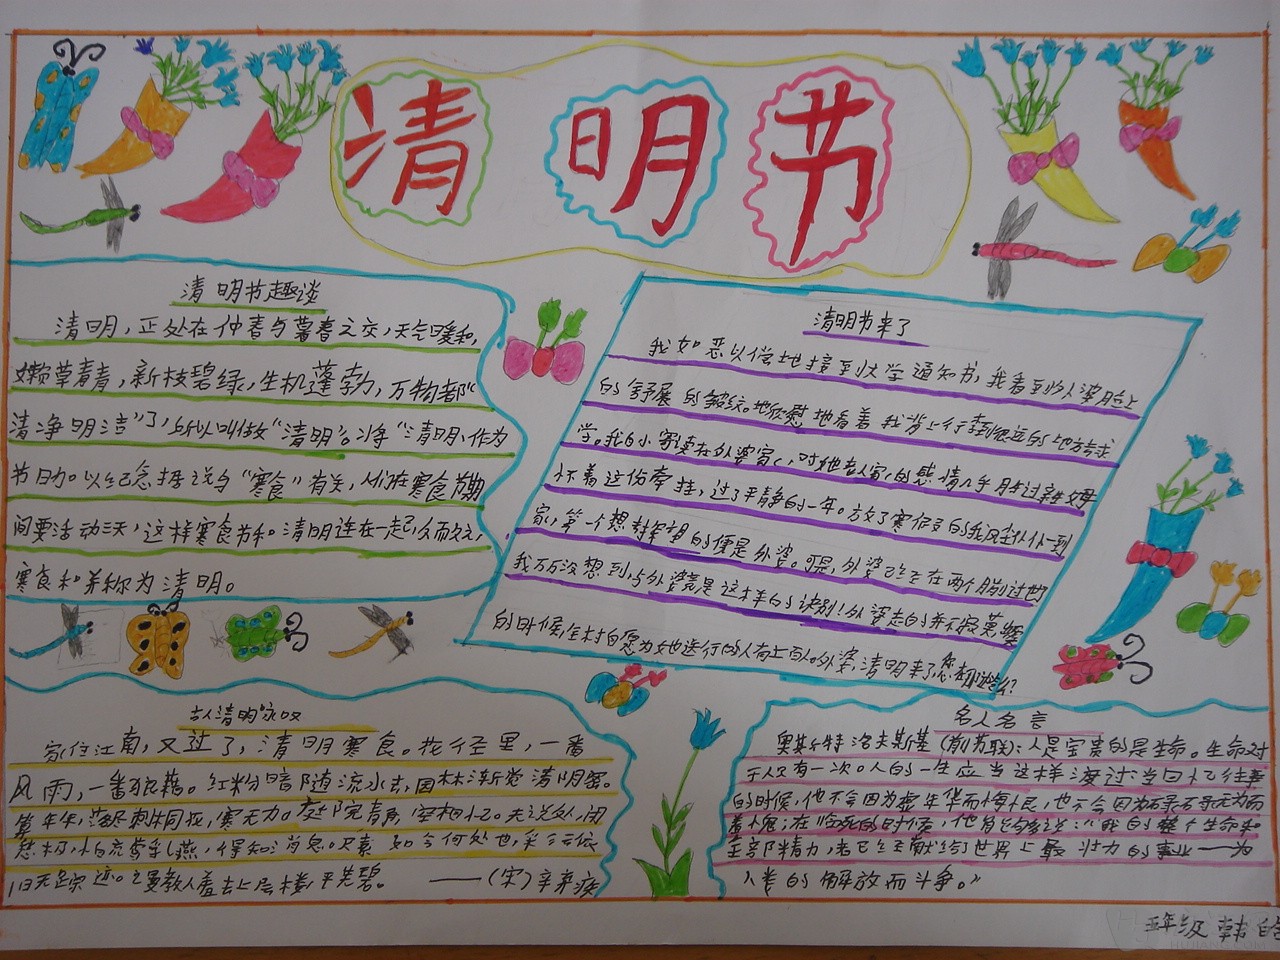 清明节
清明节趣谈
清明，正处在仲春与暮春之交，天气暖和，
嫩草青青，新枝碧绿，生机蓬勃，万物都“
清净明洁”了，所以叫做“清明”。将“清明”作为
节日加以纪念据说与“寒食”有关，人们在寒食节期
间要活动三天，这样寒食节和清明连在一起，久而久之，
寒食和并称为清明。
清明节来了
我如愿以偿地接到大学通知书，我看到外婆脸上
的舒展的皱纹。她欣慰地看着我背上行李到很远的地方去求
学。我自小寄读在外婆家，对她老人家的感情几乎胜过亲母
怀着这份牵挂，过了平静的一年。放了寒假的我风尘仆仆一到
家，第一个想探望的便是外婆。可是，外婆已经在两个月前过世
我万万没想到，与外婆竟是这样的诀别！外婆走的并不寂寞
的时候，全村自愿为她送行的人有上百人。外婆，清明来了，您
古人清明咏叹
家住江南，又过了，清明寒食。花径里，一番
风雨，一番狼藉。红粉暗随流水去，园林渐觉清阴密。
算年年，落尽刺桐花，寒无力。庭院静，空相忆。无说处，闲
愁极，怕流莺乳燕，得知消息。尺素如今何处也，彩云依
旧无踪迹。谩教人羞去上层楼，平芜碧。——（宋）辛弃疾
名人名言
奥斯特洛夫斯基（前苏联）：人最宝贵的是生命。生命对
于人只有一次。人的一生应当这样渡过：当回忆往事
的时候，他不会因为虚年华而悔恨，也不会因为碌碌无为而
羞愧；在临死的时候，他能够说：“我的整个生命和
全部精力，都已经献给世界上最壮力的事业——为
人类的解放而斗争。”
五年级 韩